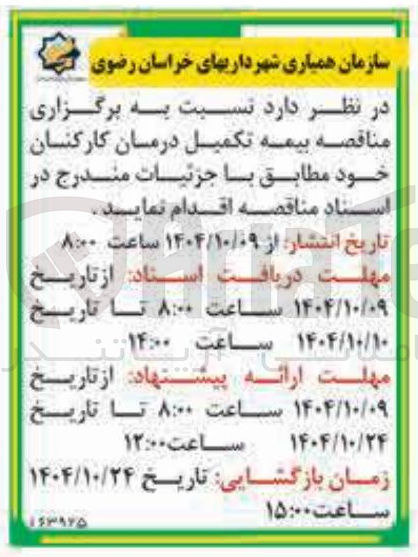 سازمان همیاری شهرداریهای خراسان رضوی
در نظر دارد نسبت به برگزاری
مناقصه بیمه تکمیل درمان کارکنان
خود مطابق با جزئیات مندرج در
اسناد مناقصه اقدام نمایید.
تاریخ انتشار: از ۱۴۰۴/۱۰/۰۹ ساعت ۸:۰۰
مهلت دریافت اسناد: ازتاریخ
۱۴۰۴/۱۰/۰۹ ساعت ۸:۰۰ تا تاریخ
۱۴۰۴/۱۰/۱۰ ساعت ۱۴:۰۰
مهلت ارائه پیشنهاد: ازتاریخ
۱۴۰۴/۱۰/۰۹ ساعت ۸:۰۰ تا تاریخ
۱۴۰۴/۱۰/۲۴ ساعت ۱۲:۰۰
زمان بازگشایی: تاریخ ۱۴۰۴/۱۰/۲۴
ساعت ۱۵:۰۰
۱۶۳۹۲۵